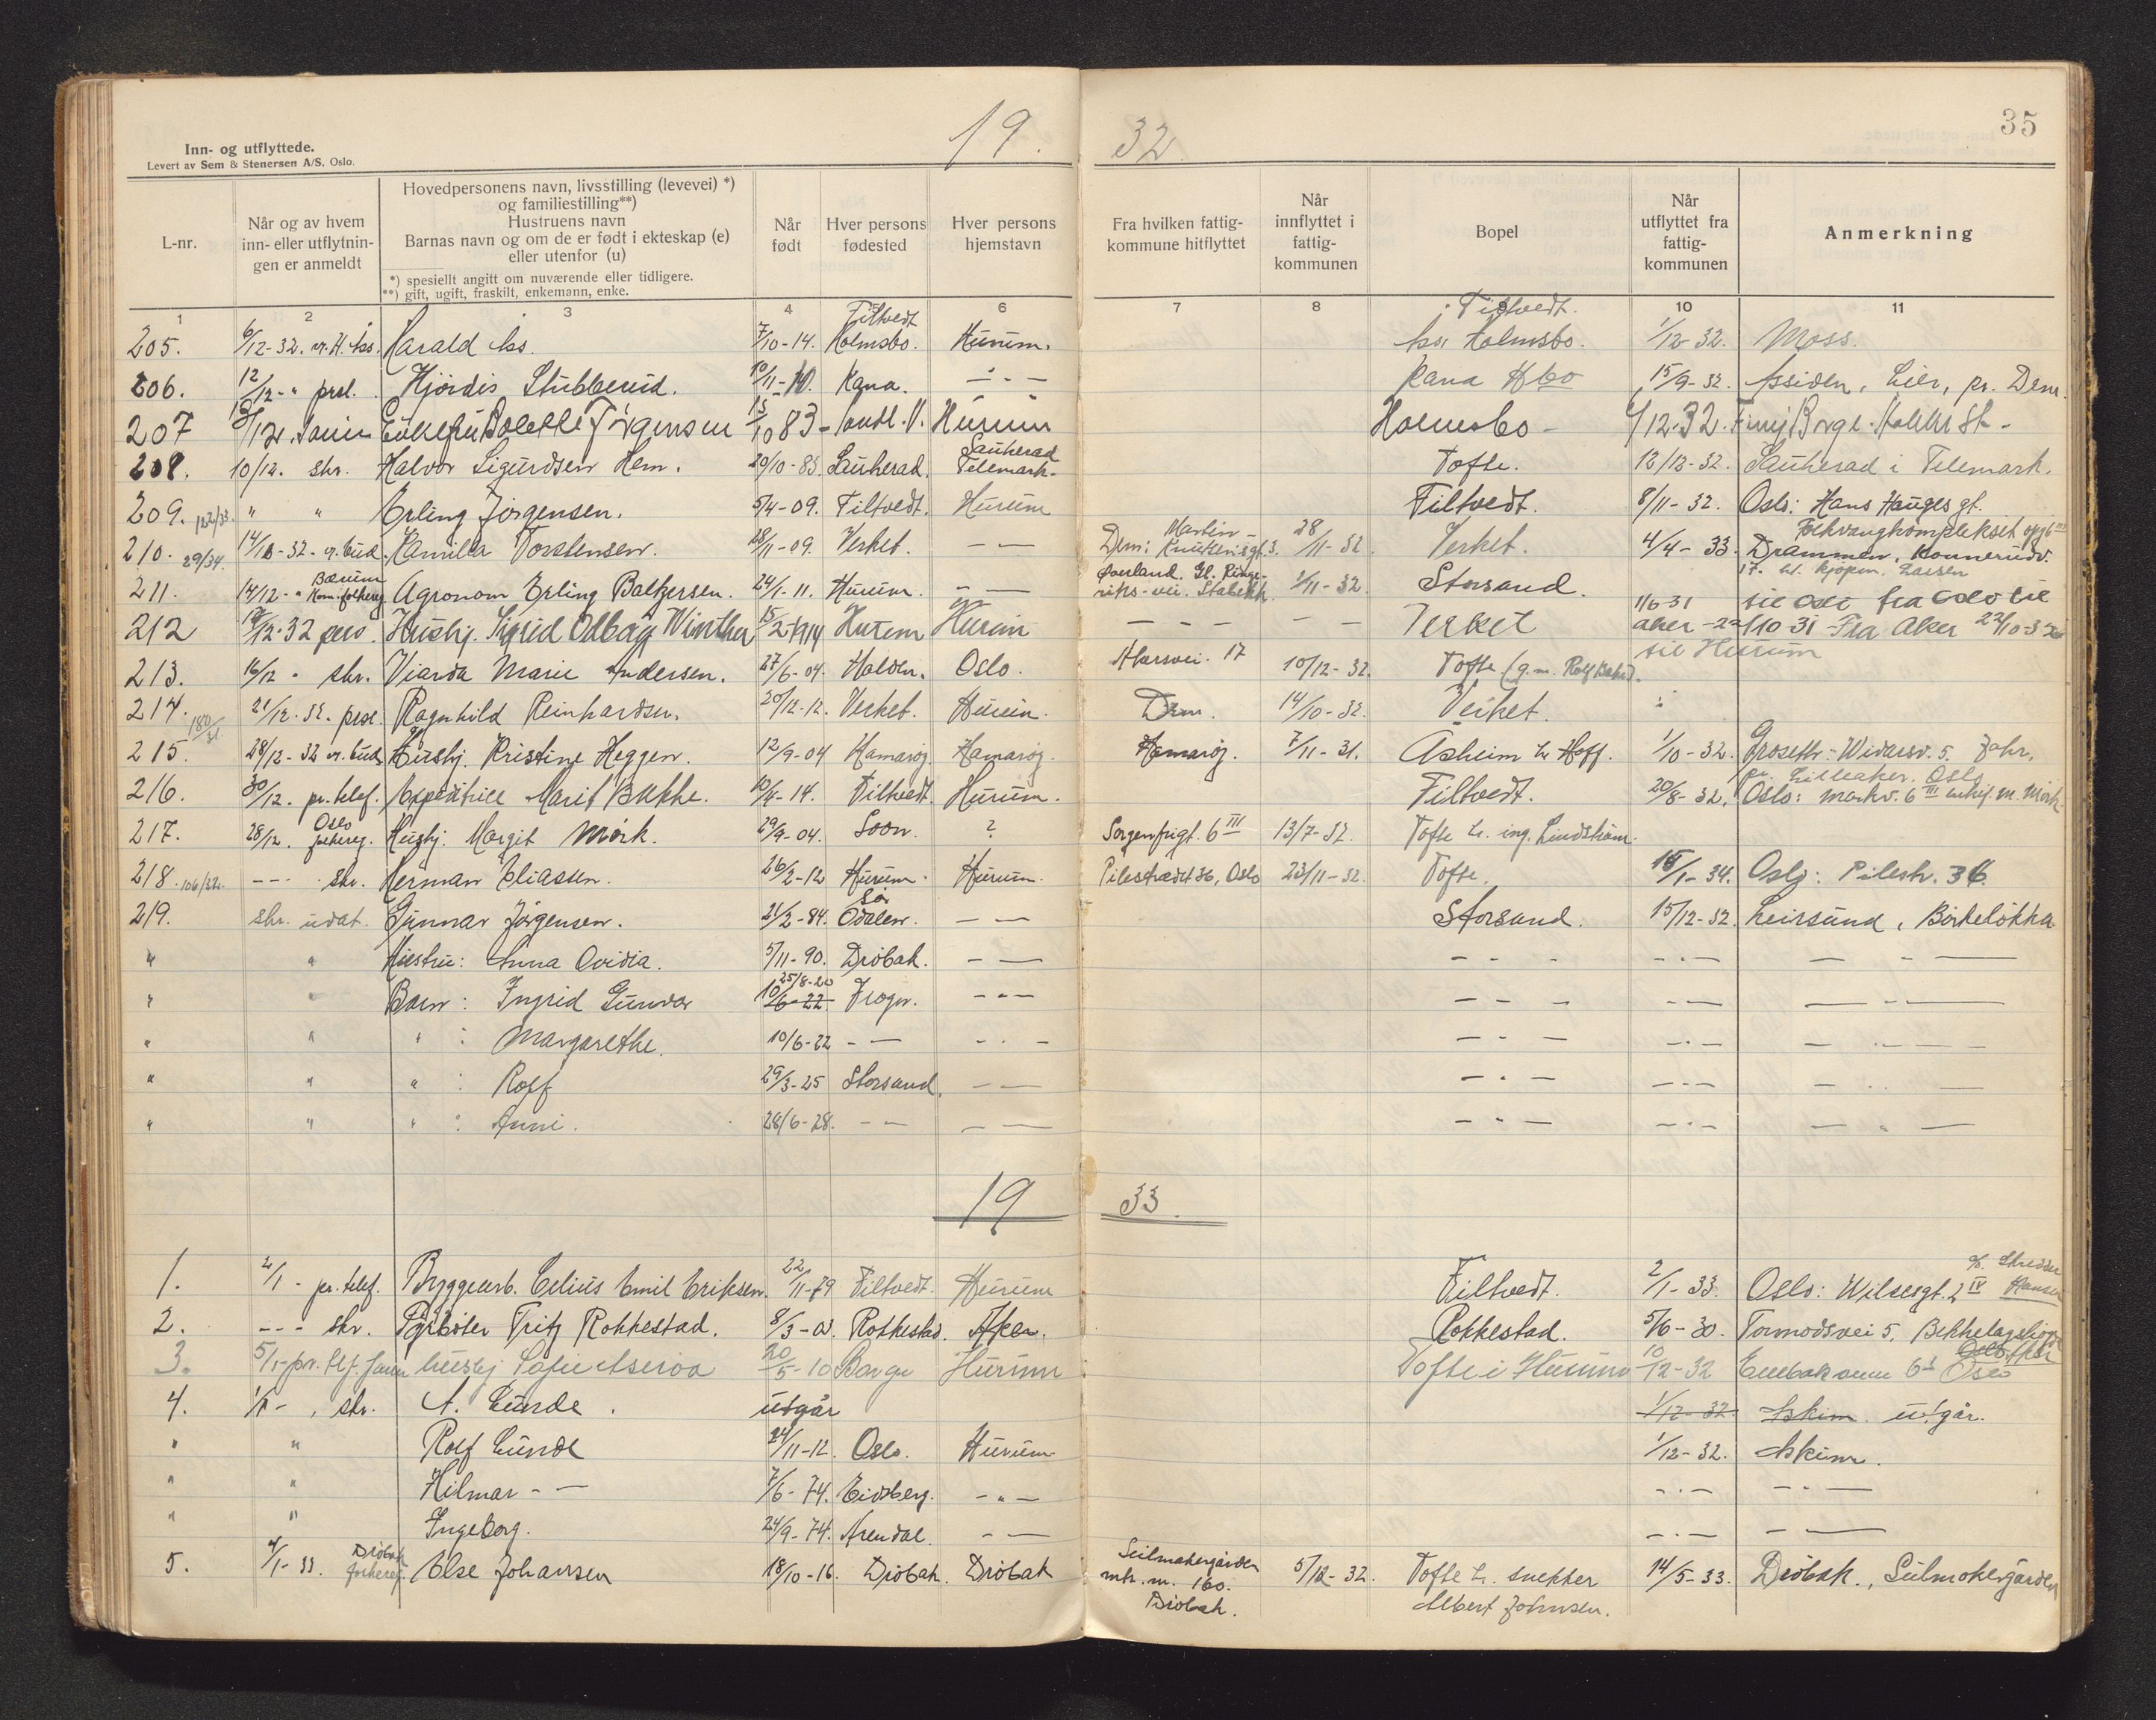 19.
32.
35
Inn- og utflyttede.
Levert av Sem & Stenersen A/S, Oslo.
L-nr.
Når og av hvem inn- eller utflytningen er anmeldt
Hovedpersonens navn, livsstilling (levevei) *)
og familiestilling**)
Hustruens navn
Barnas navn og om de er født i ekteskap (e)
eller utenfor (u)
*) spesielt angitt om nuværende eller tidligere.
**) gift, ugift, fraskilt, enkemann, enke.
Når født
Hver persons fødested
Hver persons hjemstavn
Fra hvilken fattigkommune hitflyttet
Når innflyttet i fattigkommunen
Bopel
Når utflyttet fra fattigkommunen
Anmerkning
1 2 3 4 5 6 7 8 9 10 11
Filtvedt Filtvedt.
205. 6/12-32. Harald Aas. 7/10-14. Holmsbo. Hurum. Aas Holmsbo. 1/12-32. Moss.
206. 12/12-" prsl. Hjördis Stubberud. 10/11-10. Kana. - " - Kana Hbo 15/9-32. Assiden, Lier, pr. Drm.
207 Enkefru Bolette Jörgensen 15/10 83- Hurum Holmsbo- 1/12.32.
208. 10/12. skr. Halvor Sigurdsen Hem. 20/10-85. Sauherad. Sauherad Telemark. Tofte. 12/12-32. Sauherad i Telemark.
209. 122/33. " " Erling Jörgensen. 5/4-09. Filtvedt. Hurum Filtvedt. 8/11-32. Oslo: Hans Hauges gt.
210. 29/34. Kamilla Torstensen. 28/11-09. Verket. - - Drm: Martin Knutsensgt. 3. 28/11-32. Verket. 4/4-33. Drammen, Konnerudv. 17.
211. 14/12-" Bærum Kom. folkereg. Agronom Erling Baltzersen. 24/1-11. Hurum. - - Gl. Ringeriks-vei. Stabekk. 1/11-32. Storsand.
212 12-32 pers. Husbj. Sigrid Odbag Winther Hurum Hurum - - - - - Verket 1/6-31 til Oslo fra Oslo til
Aker-22/10 31-Fra Aker 22/10-32
til Hurum
213. 16/12 " skr. Viarda Marie Andersen. 27/6-04. Halden. Oslo. Akersvei. 17 10/12-32. Tofte
214. 180/31. 21/12.32. prsl. Ragnhild Reinhardsen. 20/12-12. Verket. Hurum. Drm. 14/10-32. Verket.
215. 28/12-32 Husbj. Kristine Heggen. 12/9-04 Hamarøy. Hamarøy. Hamarøy. 7/11-31. Åsheim h. Hoff. 1/10-32. Grosettr: Widarsv. 5.
pr. Lilleaker. Oslo
216. 30/12. pr. telef. Expeditrice Marit Bakke. 10/4-14. Filtvedt. Hurum. Filtvedt. 20/8-32. Oslo: Markv. 6 III
217. 28/12. Oslo folkereg. Husbj. Margit Mörk. 29/9-04. Soon. ? Sorgenfrigt. 6 III 13/7-32. Tofte h. ing. Lindström.
218. 106/32. - - - skr. Herman Eliassen. 26/2-12 Hurum. Hurum. Pilestrædet 36, Oslo 23/11-32. Tofte. 15/1-34. Oslo: Pilestr. 36.
219. skr. udat. Gunnar Jörgensen. 21/2-84. Sör Odalen. - - Storsand. 15/12-32. Leirsund, Börkelökka
" " Hustru: Anna Ovidia. 5/11-90. Dröbak. - - - - - - " - - - -
" " Barn: Ingrid Gunvor 25/8-20 10/6-22 Frogn. - " - - - - - - - - -
" " " : Margarethe. 10/6-22 - - - " - - " - - " - - -
" " " : Rolf 29/3-25 Storsand. - - - " - - " - - -
" " " : Anni. 28/6-28. - - - - - " - - " - - " -
19 33.
1. 2/1- pr. telef. Byggearb. Celius Emil Eriksen. 22/11-79 Filtvedt. Hurum Filtvedt. 2/1-33. Oslo: Wilsesgt. 2 IV
2. - - - skr. Fyrböter Fritz Rokkestad. Rokkestad. Aker. Rokkestad. 5/6-30. Tormodsvei 5,
3. 5/1-pr. tlf. husbj Sofie 20/5-10 Borge Hurum Tofte i Hurum 10/12-32 Oslo
4. skr. A. Lunde. utgår 1/12-32. Askim. utgår.
" " Rolf Lunde 24/11-12. Oslo. Hurum 1/12-32. Askim.
" " Hilmar - - 7/6-74. Eidsberg. - " - - " - - " -
" " Ingeborg. 24/9-74. Arendal. - - - " - - -
5. 4/1-33. Dröbak folkereg. Else Johansen 18/10-16. Dröbak. Dröbak Seilmakergården 5/12-32. Tofte h. snekker 14/5-33. Dröbak., Seilmakergården
mtr. nr. 160.
Dröbak. Albert Johnsen.